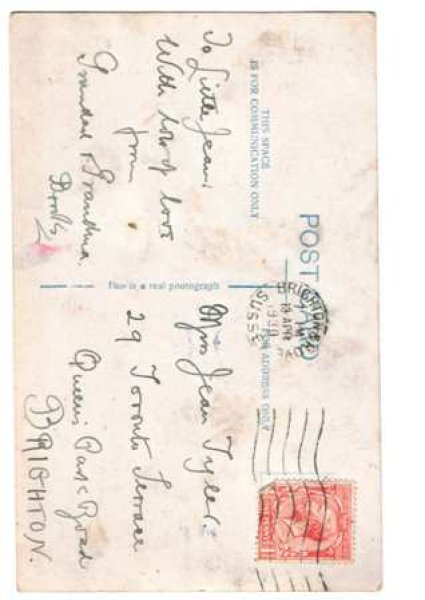 POST CARD
THIS SPACE
IS FOR COMMUNICATION ONLY
FOR ADDRESS ONLY
This is a real photograph
To Little Jean
With lots of love
from
Grandad & Grandma
BRIGHTON
19 APR
1930
SUSSEX
Miss Jean Tyler
29 Toronto Terrace
Queens Park Road
BRIGHTON.